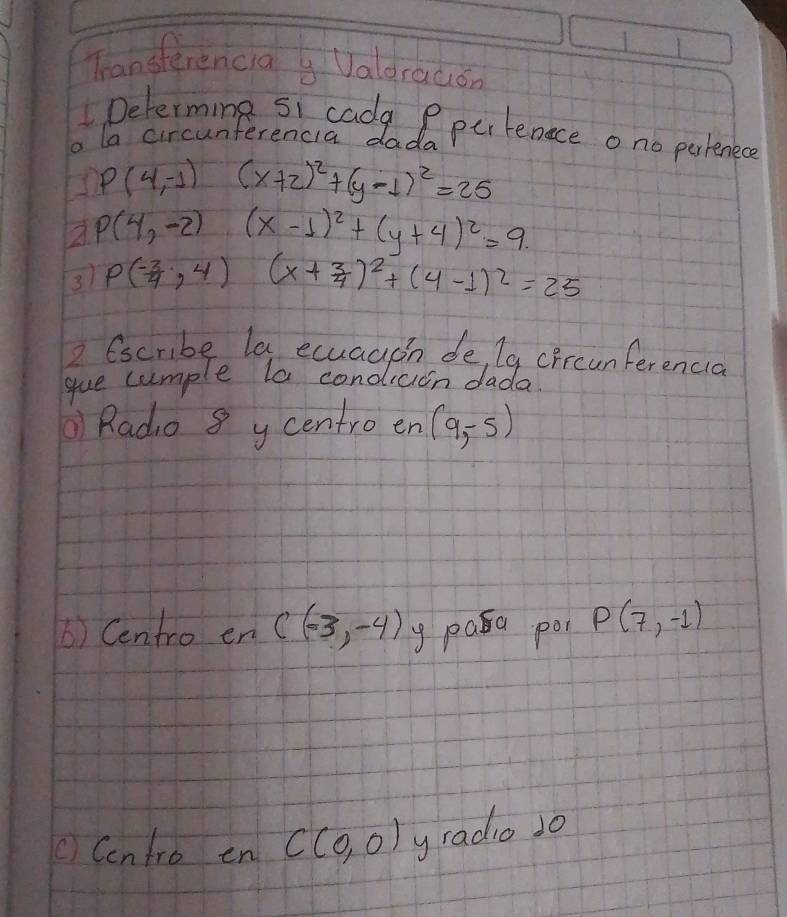 Transferencia y Valoración
1 Determina si cada P pertenece o no pertenece
a la circunferencia dada
1) P(4,-1) (x+2)²+(y-1)²=25
2) P(4,-2) (x-1)²+(y+4)²=9.
3) P(-3/4, 4) (x+3/4)²+(4-1)²=25
2 Escribe la ecuación de la circunferencia
que cumple la condición dada.
a) Radio 8 y centro en (9,-5)
b) Centro en C(-3,-4) y pasa por P(7,-1)
c) Centro en C(0,0) y radio 10